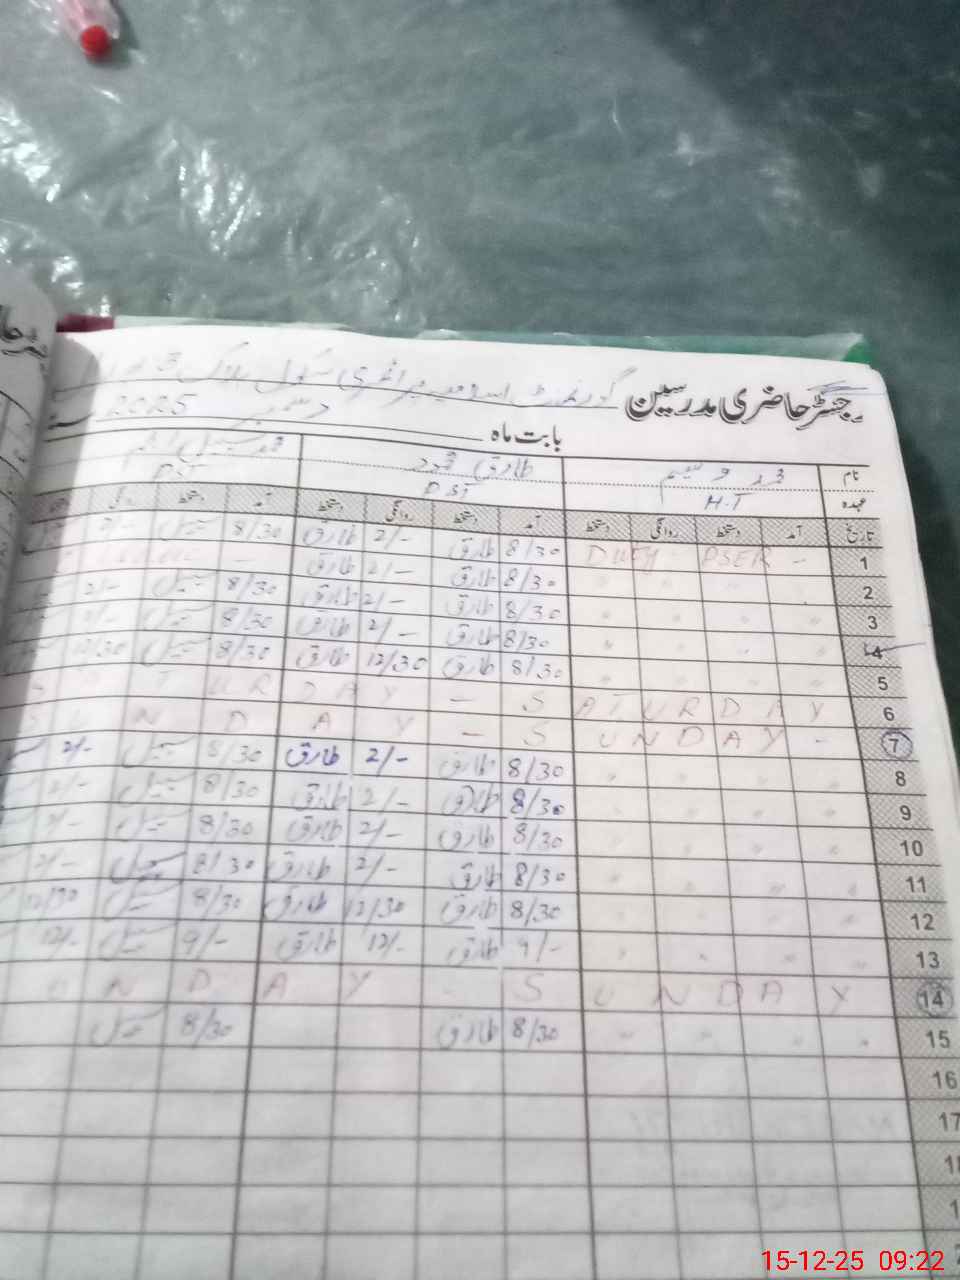 رجسٹر حاضری مدرسین گورنمنٹ پرائمری سکول بلاک 3
بابت ماہ دسمبر 2025
نام محمد وسیم طارق محمود محمد
عہدہ H.T PST PST
تاریخ آمد دستخط روانگی دستخط آمد دستخط روانگی دستخط آمد دستخط روانگی
1 - PSER DUTY 8/30 طارق 2/- طارق 8/30
2 " " " " 8/30 طارق 2/- طارق
3 " " " " 8/30 طارق 2/- طارق 8/30 2/-
4 " " " " 8/30 طارق 2/- طارق 8/30
5 " " " " 8/30 طارق 12/30 طارق 8/30 12/30
6 SATURDAY - SATURDAY
7 SUNDAY - SUNDAY -
8 " " " " 8/30 طارق 2/- طارق 8/30 2/-
9 " " " " 8/30 طارق 2/- طارق 8/30 2/-
10 " " " " 8/30 طارق 2/- طارق 8/30 2/-
11 " " " " 8/30 طارق 2/- طارق 8/30 2/-
12 " " " " 8/30 طارق 12/30 طارق 8/30 12/30
13 " " " " 9/- طارق 12/- طارق 9/- 12/-
14 UNDAY - SUNDAY
15 " " " " 8/30 طارق 8/30
16
17
15-12-25 09:22